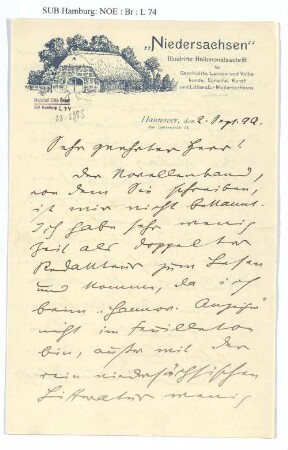 SUB Hamburg: NOE : Br : L 74
„Niedersachsen“
Illustrirte Halbmonatsschrift
für
Geschichte, Landes- und Volks-
kunde, Sprache, Kunst
und Litteratur Niedersachsens.
Hannover, den 2. Sept. 99.
Sehr geehrter Herr!
Der Novellenband,
von dem Sie schreiben,
ist mir nicht bekannt.
Ich habe sehr wenig
Zeit als doppelter
Redakteur zum Lesen
und komme, da ich
beim „Hannov. Anzeiger“
nicht im Feuilleton
bin, außer mit der
rein niedersächsischen
Litteratur wenig